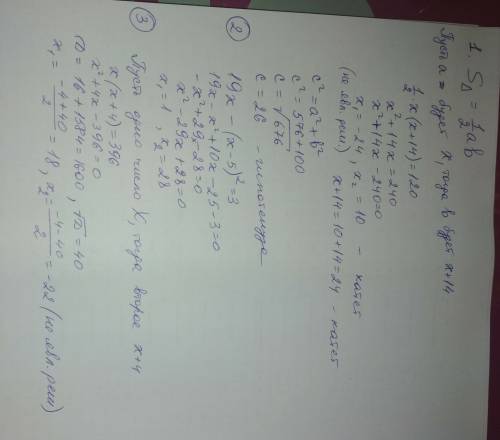 1. S△ = 1/2 ab
Пусть a = будет x, тогда b будет x+14
1/2 x(x+14)=120
x²+14x=240
x²+14x-240=0
x₁=-24, x₂=10 - катет
(не явл. реш) x+14=10+14=24 - катет
c²=a²+b²
c²=576+100
c=√676
c=26 - гипотенуза
② 19x-(x-5)²=3
19x-x²+10x-25-3=0
-x²+29x-28=0
x²-29x+28=0
x₁=1, x₂=28
③ Пусть одно число x, тогда второе x+4
x(x+4)=396
x²+4x-396=0
D=16+1584=1600, √D=40
x₁=(-4+40)/2=18, x₂=(-4-40)/2=-22 (не явл. реш)